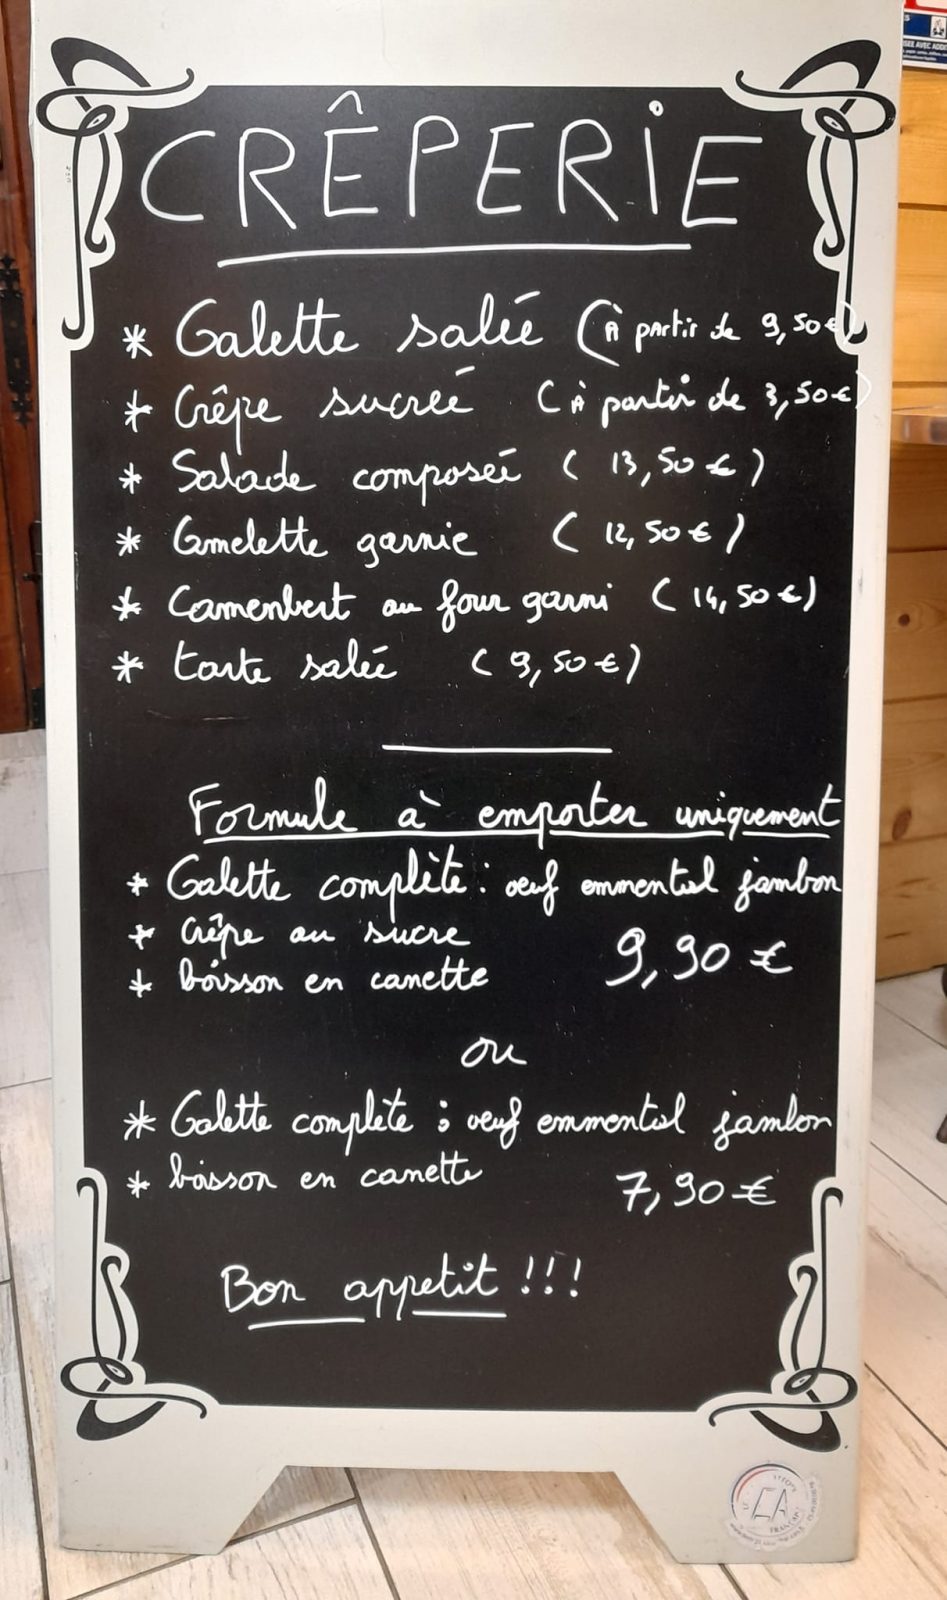 CRÊPERIE
* Galette salée (À partir de 9,50€)
* Crêpe sucrée (À partir de 3,50€)
* Salade composée (13,50€)
* Omelette garnie (12,50€)
* Camembert au four garni (14,50€)
* tarte salée (9,50€)
Formule à emporter uniquement
* Galette complète : oeuf emmental jambon
* Crêpe au sucre
9,90 €
* boisson en canette
ou
* Galette complète : oeuf emmental jambon
* boisson en canette
7,90 €
Bon appetit !!!